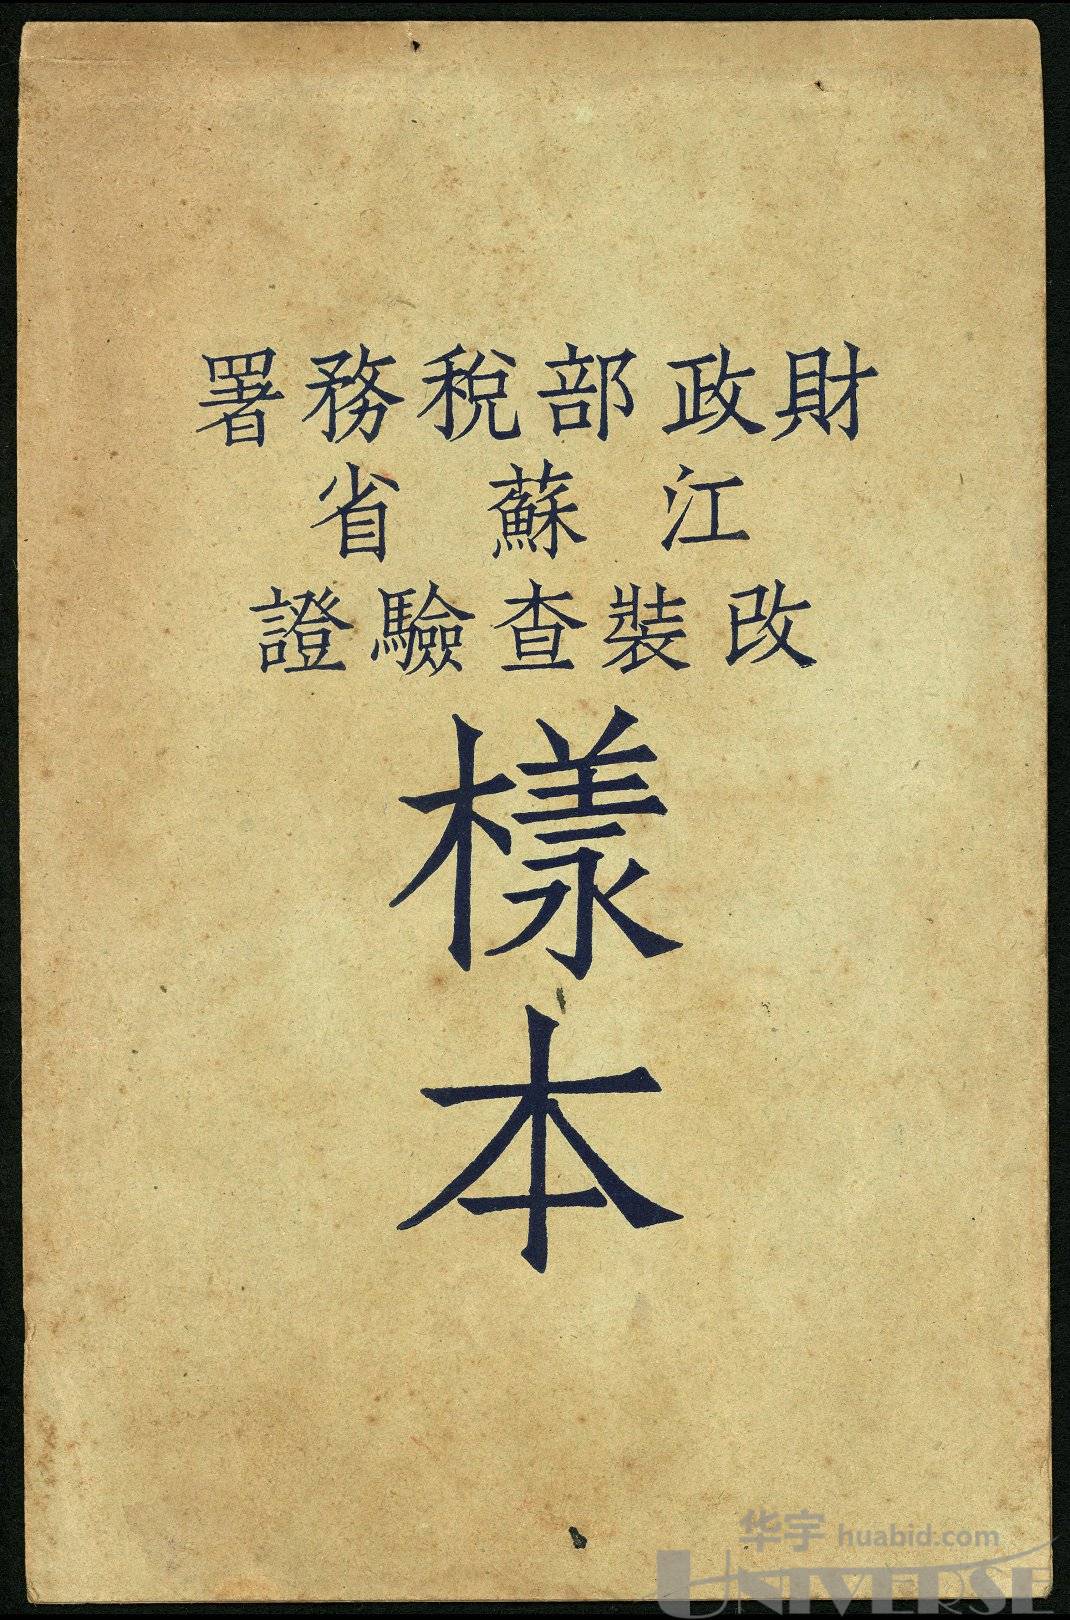 財政部稅務署
江蘇省
改裝查驗證
樣
本
华宇 huabid.com
UNIVERSE